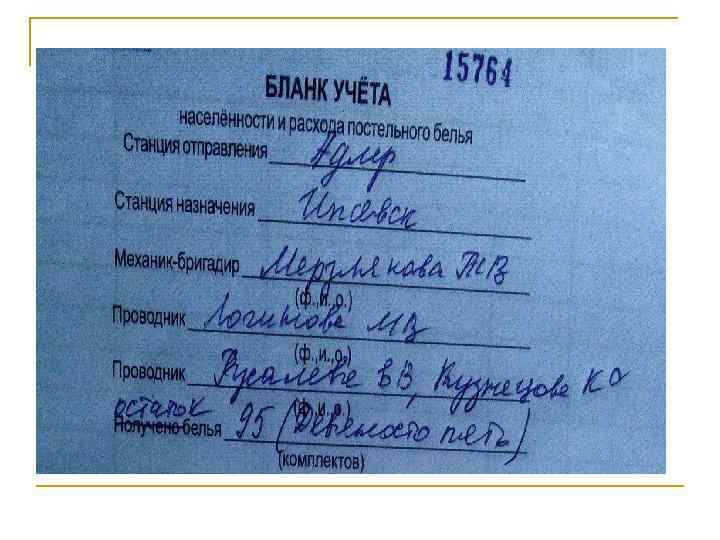 15764
БЛАНК УЧЁТА
населённости и расхода постельного белья
Станция отправления Адлер
Станция назначения Ижевск
Механик-бригадир Мерзлякова ТВ
(ф., и., о.)
Проводник Логинова МВ
(ф., и., о.)
Проводник ВВ, Кузнецова КО
(ф., и., о.)
остаток
Получено белья 95 (Девяносто пять)
(комплектов)